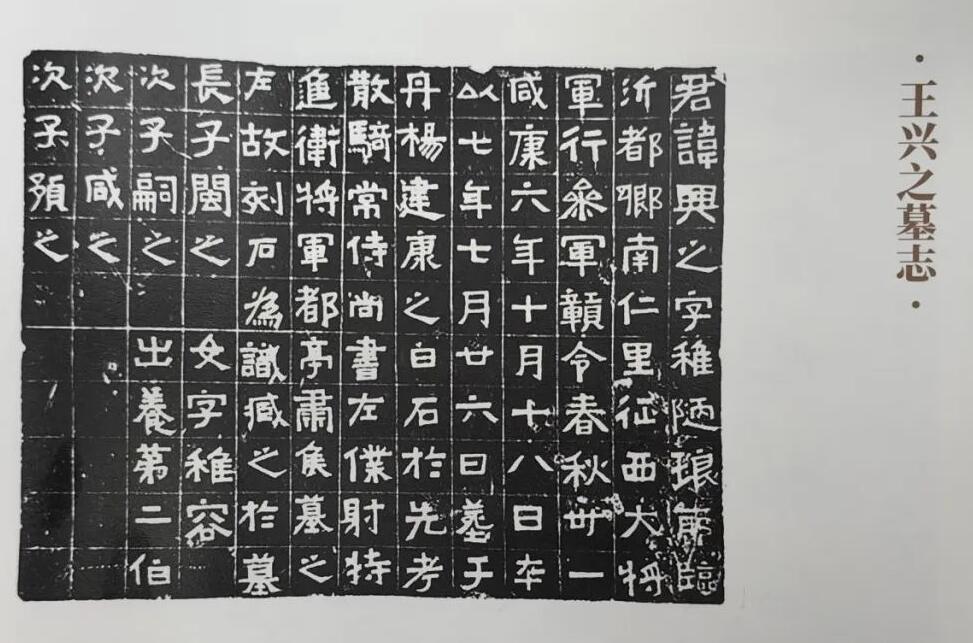 ·王兴之墓志·
君諱興之字稚陋琅耶臨
沂都鄉南仁里征西大將
軍行參軍贛令春秋卅一
咸康六年十月十八日卒
以七年七月廿六日葬于
丹楊建康之白石於先考
散騎常侍尚書左僕射特
進衛將軍都亭肅侯墓之
左故刻石為識臧之於墓
長子閩之 女字稚容
次子嗣之 出養第二伯
次子咸之
次子預之